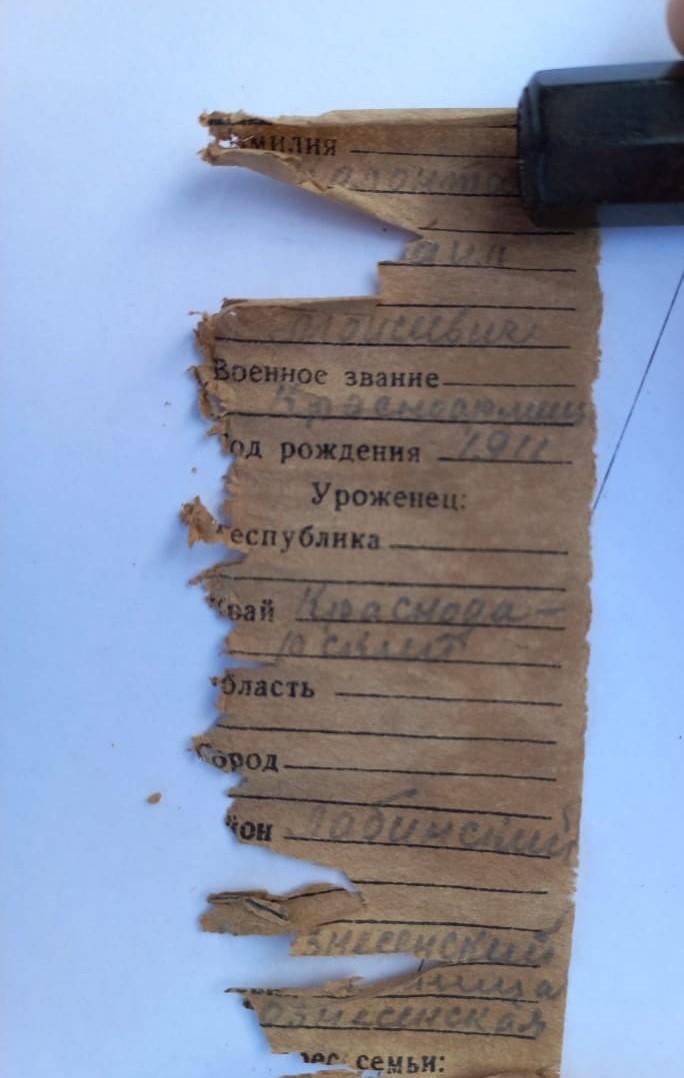 милия
аил
Моисеевич
Военное звание
Красноармеец
од рождения 1911
Уроженец:
еспублика
Край Краснода-
рский
бласть
Город
йон Лабинский
знесенский
ница
ознесенская
рес семьи: